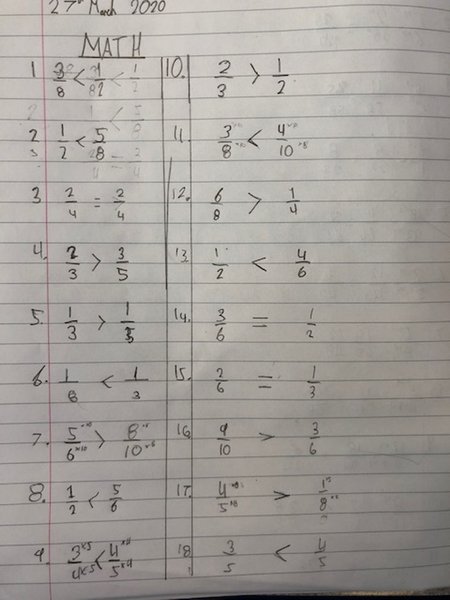 27th March 2020
MATH
1 3/8 < 1/2
2 1/2 < 5/8
3 2/4 = 2/4
4. 2/3 > 3/5
5. 1/3 > 1/5
6. 1/8 < 1/3
7. 5/6 ×10 > 8/10 ×6
8. 1/2 < 5/6
9. 3×5/4×5 < 4×4/5×4
10. 2/3 > 1/2
11. 3×10/8×10 < 4×8/10×8
12. 6/8 > 1/4
13. 1/2 < 4/6
14. 3/6 = 1/2
15. 2/6 = 1/3
16. 9/10 > 3/6
17. 4×8/5×8 > 1×5/8×5
18 3/5 < 4/5